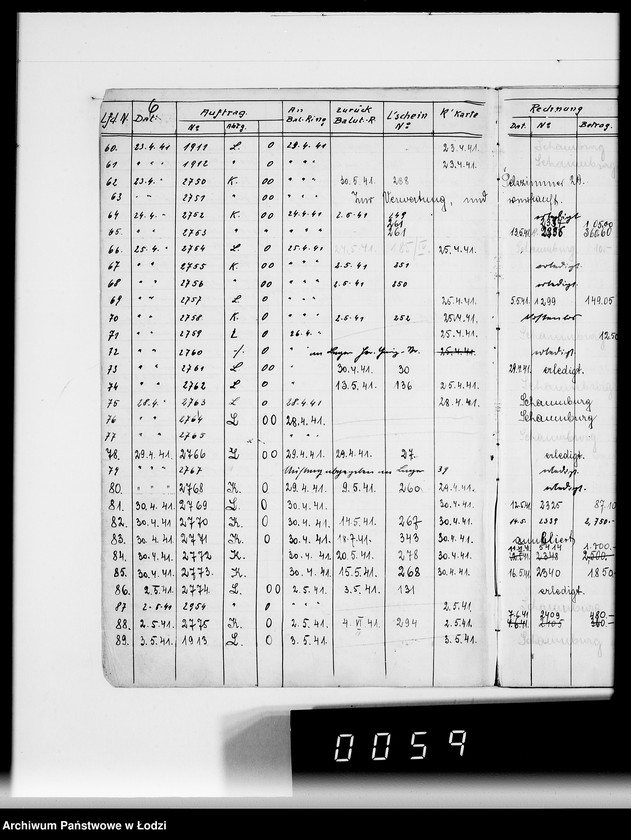 6
Lfd N. Dat. Auftrag. An Bal.-Ring zurück Balut.-R. L'schein No K'Karte Rechnung
No Abtg. Dat. No Betrag.
60. 23.4.41 1911 L. 0 29.4.41 23.4.41.
61 " " " 1912 " 0 " " " 23.4.41.
62 23.4. " 2750 K. 00 " " " 30.5.41. 268
63 " " 2751 " 00 " " " Zur Verwertung, und
64 24.4. " 2752 K. 00 24.4.41 2.5.41 249 erledigt
65. " " " 2753 " 00 " " " 261 13.5.41 2336 360.60
66. 25.4. " 2754 L 0 25.4.41 25.4.41.
67 " " " 2755 K. 00 " " " 2.5.41 251 erledigt.
68 " " " 2756 " 00 " " " 2.5.41 250 erledigt.
69 " " " 2757 L 0 " " " 25.4.41. 5.5.41 1299 149.05
70 " " " 2758 K 0 " " " 2.5.41. 252 25.4.41.
71 " " " 2759 L 0 26.4. " 25.4.41. 12.50
72 " " " 2760 ⁒ 0 " 25.4.41 erledigt.
73 " " " 2761 L 00 " 30.4.41. 30 29.4.41 erledigt.
74 " " " 2762 L 0 " 13.5.41. 136 25.4.41.
75 28.4. " 2763 L 0 28.4.41 28.4.41. Schaumburg
76 " " 2764 L 00 28.4.41. Schaumburg
77 " " 2765 " " "
78. 29.4.41. 2766 L 00 29.4.41. 29.4.41. 27. erledigt.
79 " " " 2767 39 erledigt.
80. " " " " 2768 K. 0 29.4.41. 9.5.41. 260 29.4.41. erledigt.
81. 30.4.41. 2769 L. 0 30.4.41. 30.4.41. 12.5.41 2325 87.10
82. 30.4.41. 2770 K. 0 30.4.41. 14.5.41. 267 30.4.41. 14.5. 2339 2,750.-
83. 30.4.41. 2771 K. 0 30.4.41. 18.7.41. 343 30.4.41. annulliert
84. 30.4.41. 2772 K. 30.4.41. 20.5.41. 278 30.4.41. 5414 1.700.- 2348 2,500.-
85. 30.4.41. 2773. K. 30.4.41. 15.5.41. 268 30.4.41. 16.5.41 2340 1850
86. 2.5.41. 2774. L. 00 2.5.41. 3.5.41. 131 erledigt.
87 2.5.41 2954 " 0 " " 2.5.41.
88. 2.5.41. 2775 K. 0 2.5.41. 4.VI.41. 294 2.5.41. 7.6.41 2409 480.- 4.6.41 2405 360.-
89. 3.5.41. 1913 L. 0 3.5.41. 3.5.41.
0059
Archiwum Państwowe w Łodzi